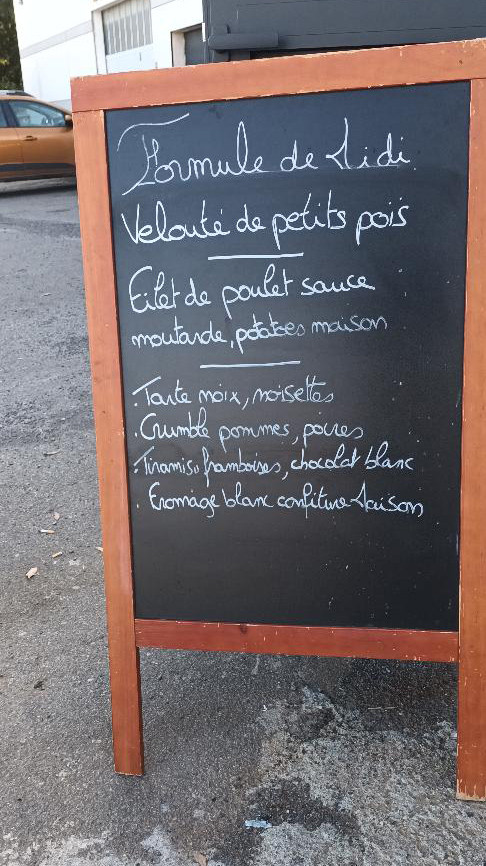 Formule de Midi
Velouté de petits pois
Filet de poulet sauce
moutarde, potatoes maison
. Tarte noix, noisettes
. Crumble pommes, poires
. Tiramisu framboises, chocolat blanc
. Fromage blanc confiture Maison